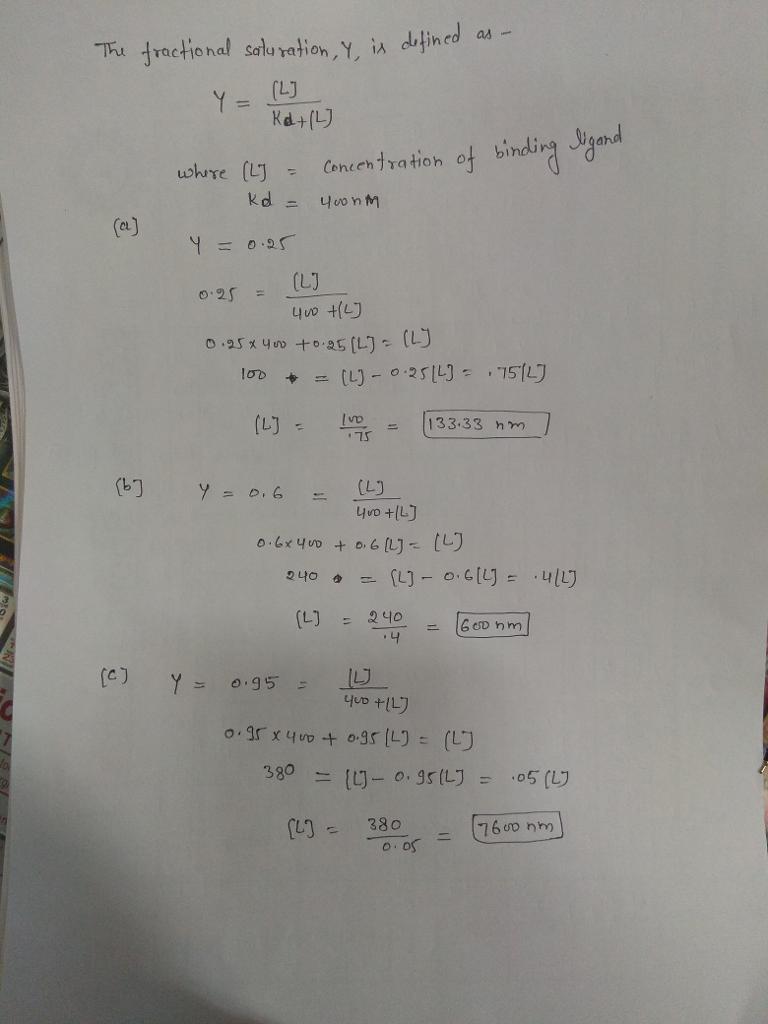 The fractional saturation, Y, is defined as -
Y = [L] / Kd+[L]
where [L] = Concentration of binding ligand
Kd = 400nM
(a)
Y = 0.25
0.25 = [L] / 400 +[L]
0.25 x 400 + 0.25 [L] = [L]
100 = [L] - 0.25[L] = .75[L]
[L] = 100 / .75 = 133.33 nm
(b)
Y = 0.6 = [L] / 400+[L]
0.6x400 + 0.6[L] = [L]
240 = [L] - 0.6[L] = .4[L]
[L] = 240 / .4 = 600 nm
(c)
Y = 0.95 = [L] / 400+[L]
0.95 x 400 + 0.95 [L] = [L]
380 = [L] - 0.95[L] = .05 [L]
[L] = 380 / 0.05 = 7600 nm